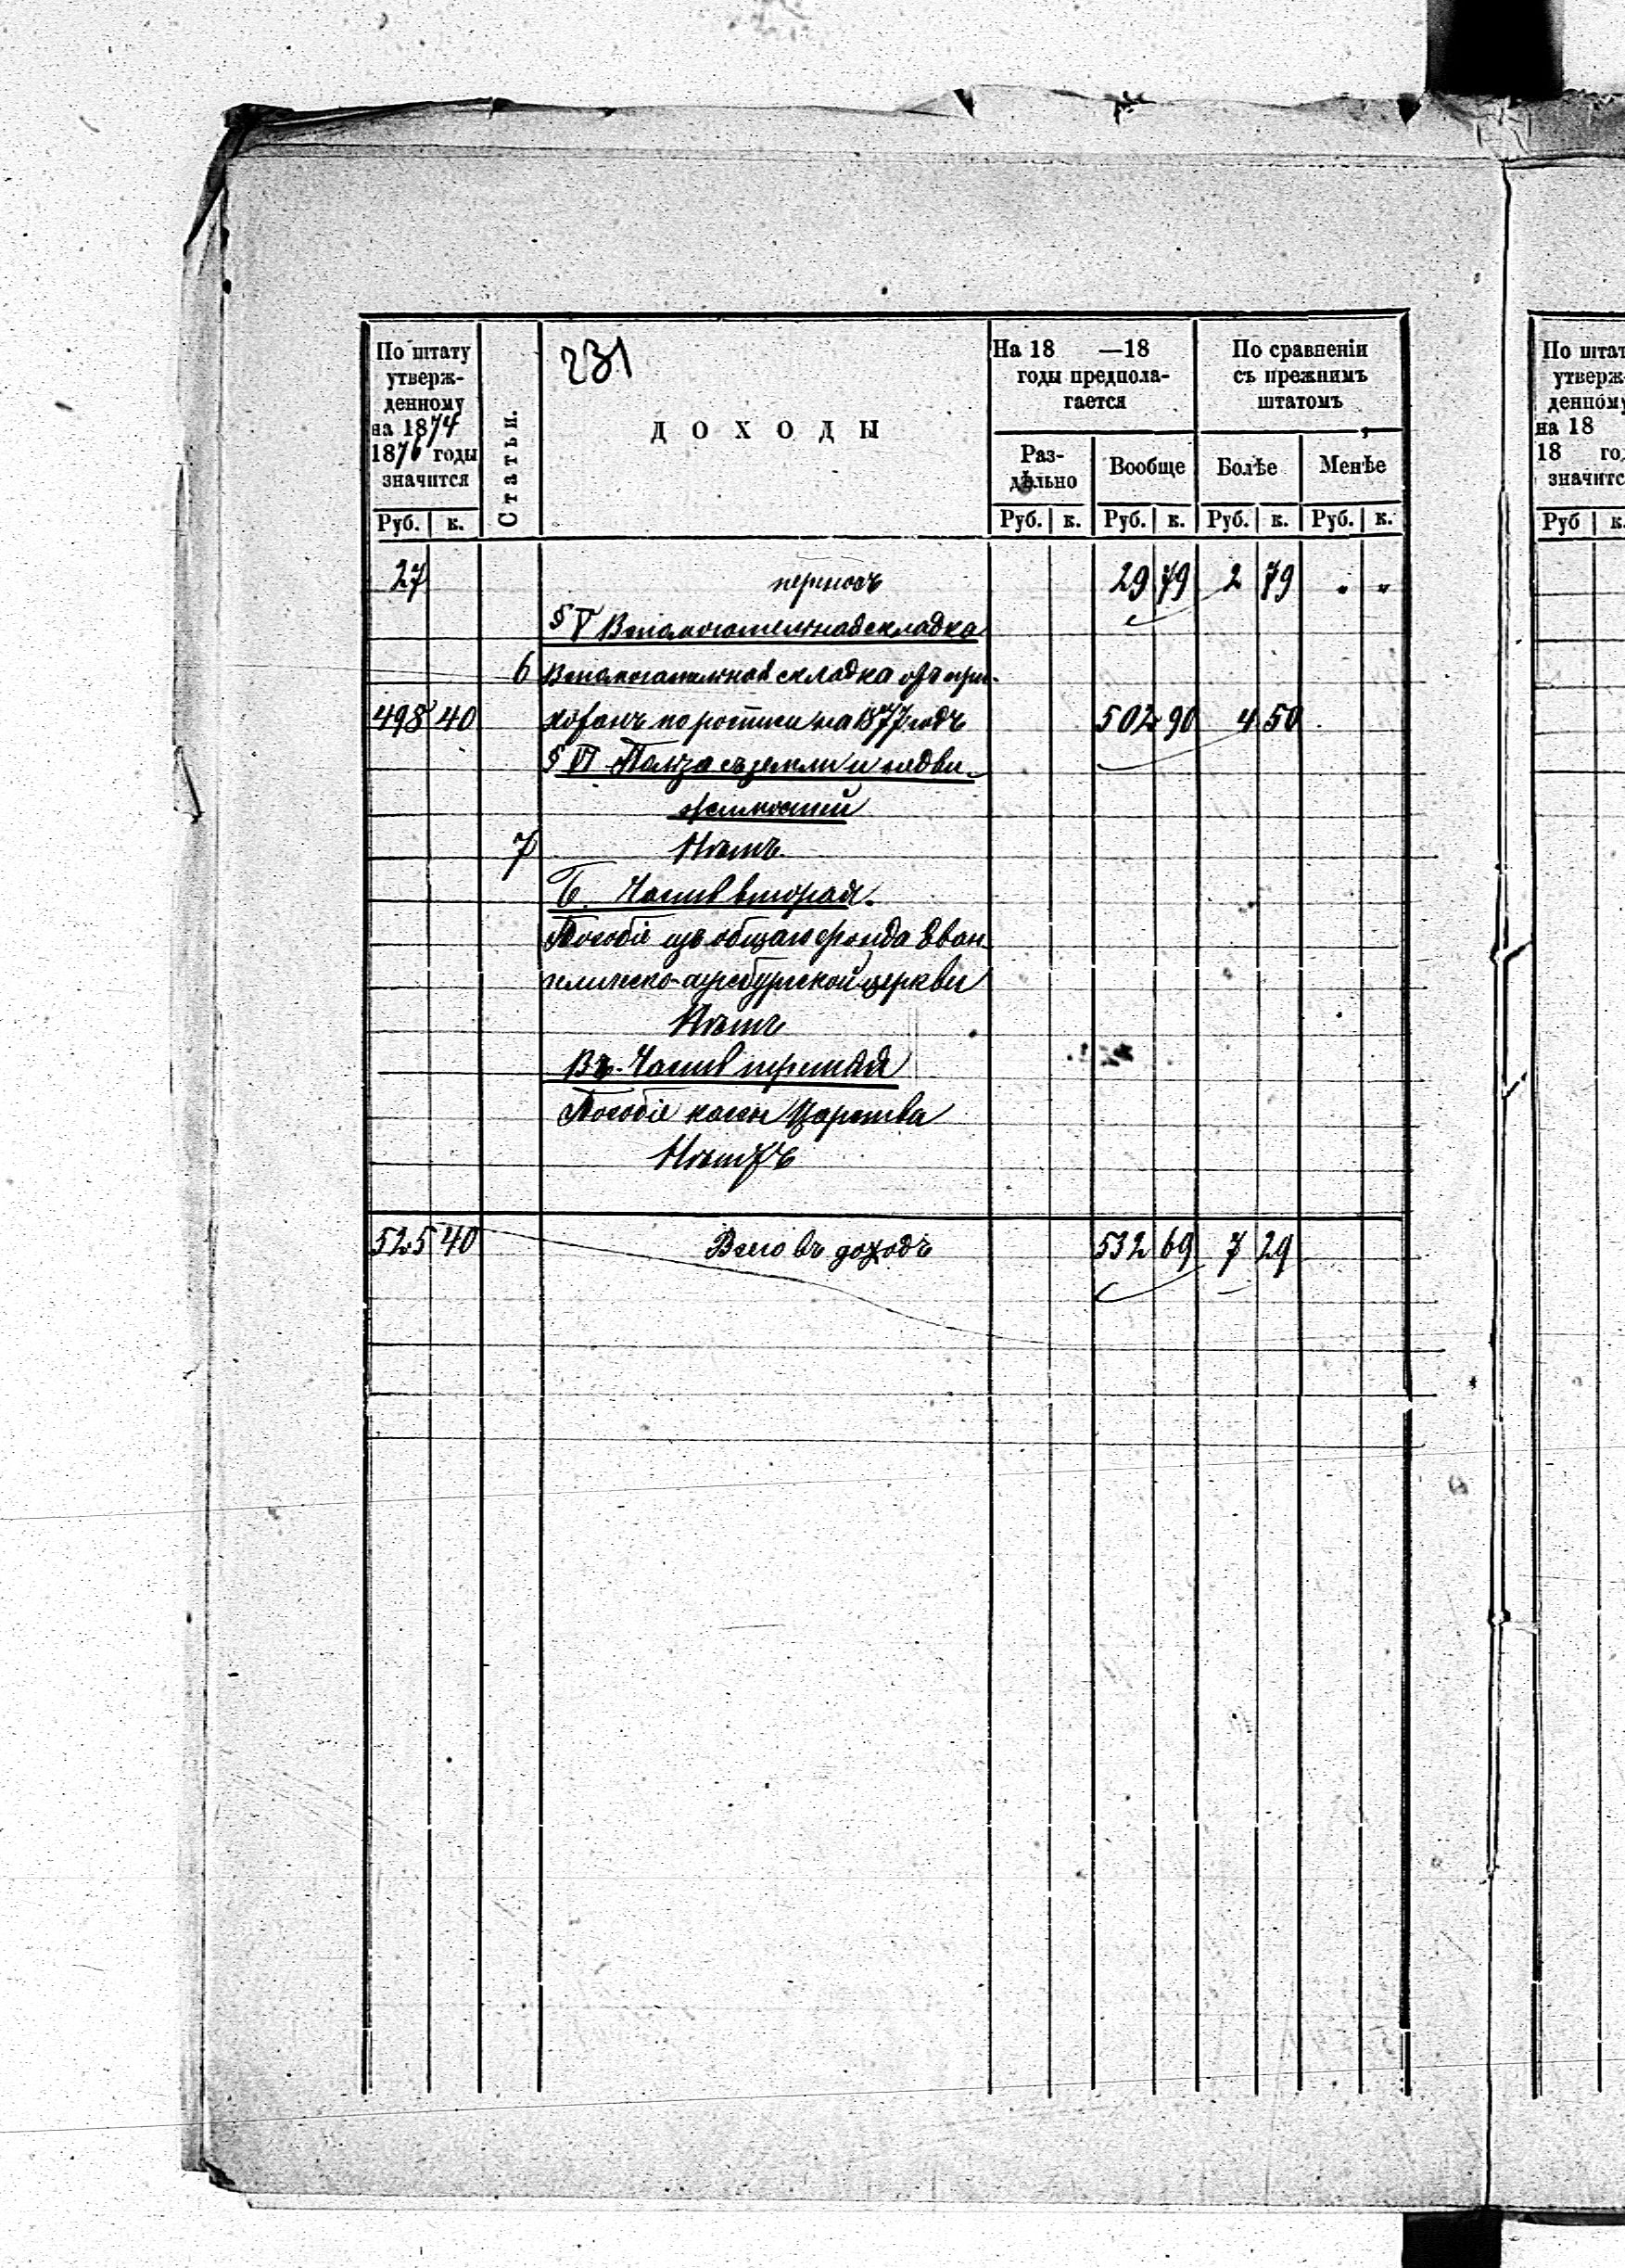 231
По штату утверж- денному на 1874 1876 годы значится
Статьи.
ДОХОДЫ
На 18 —18 годы предпола- гается
По сравненіи съ прежнимъ штатомъ
Раз- дѣльно
Вообще
Болѣе
Менѣе
Руб. к. Руб. к. Руб. к. Руб. к. Руб. к.
27 переносъ 29 79 2 79 " "
§ V Вспомогательная складка
6 Вспомогательная складка отъ при-
498 40 хожанъ по росписи на 1877 годъ 502 90 4 50
§ VI Польза съ земли и недви-
жимостей
7 Нѣтъ.
Б. Часть вторая.
Пособіе изъ общаго фонда Еван-
гелическо-аугсбургской церкви
Нѣтъ
Въ. Часть третья
Пособіе кассы Царства
Нѣтъ
525 40 Всего въ доходъ 532 69 7 29
По штат
утверж-
денному
на 18
18 го
значитс
Руб к.